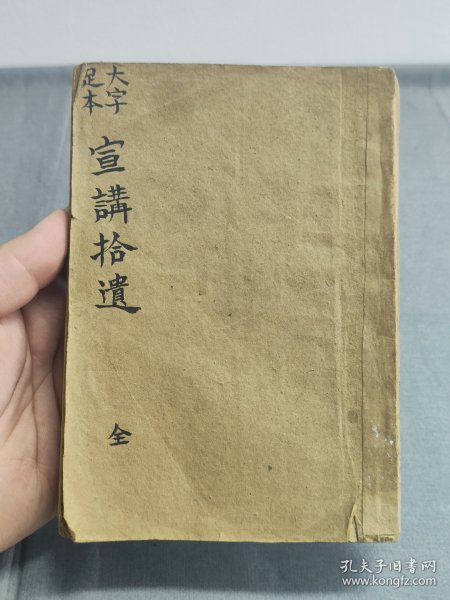 大字
足本
宣講拾遺
全
孔夫子旧书网
www.kongfz.com